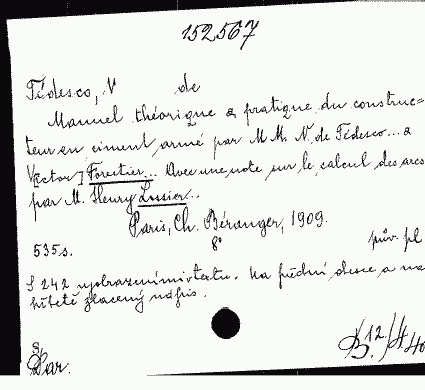 152567
Tédesco, V de
Manuel théorique & pratique du construc=
teur en ciment armé par M. M. N. de Tédesco... &
V[ictor] Forestier... Avec une note sur le calcul des arcs
par M. Henry Lossier...
Paris, Ch. Béranger, 1909.
535 s. 8° pův. pl
S 242 vyobrazeními v textu. Na přední desce a na
hřbetě zlacený nápis.
B. 12./4
Dar.